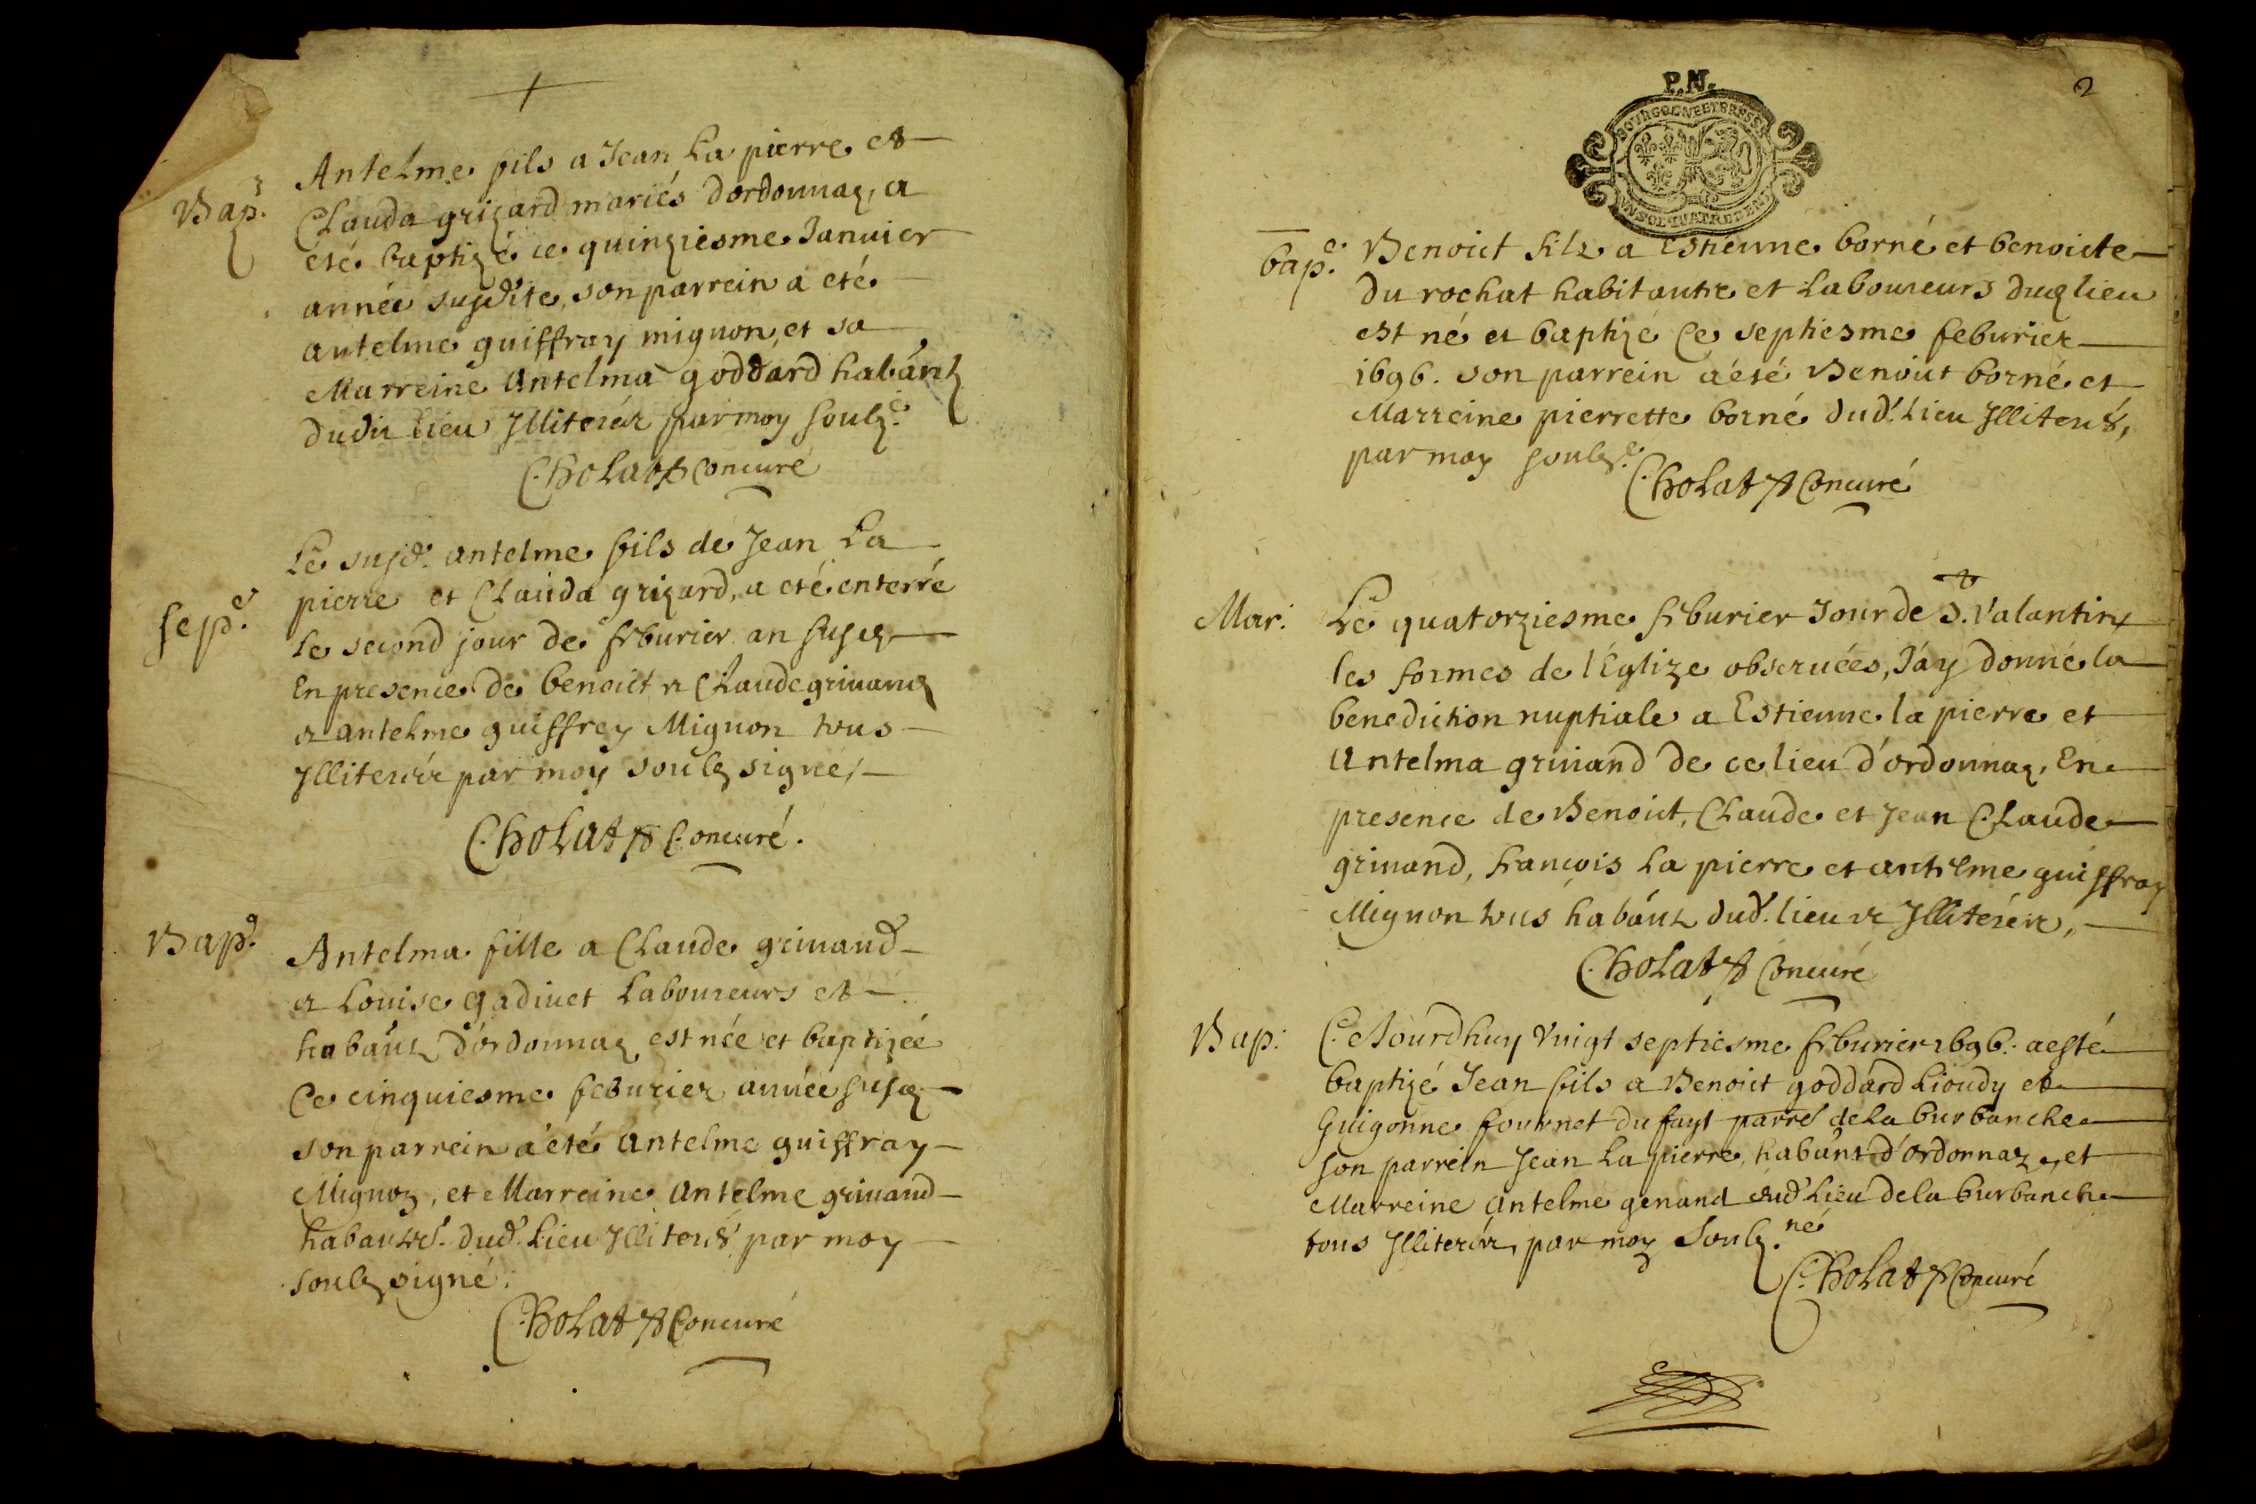 Bap.
Antelme fils a Jean La pierre et
Clauda grizard mariés d'ordonnaz, a
eté baptizé ce quinziesme Janvier
année susdite, son parrein a eté
antelme guiffray mignon, et sa
Marreine Antelma goddard habãnts
dudit lieu Illiterés par moy soubz.
Cholat Concuré
sepe.
Le susd. antelme fils de Jean La
pierre et Clauda grizard, a eté enterré
le second jour de feburier an
En presence de benoict et Claude grinand
et antelme guiffrey Mignon tous
Illiterés par moy soubz signé,
Cholat Concuré.
Bape.
Antelma fille a Claude grinand
et Louise gadivet Laboureurs et
habãns d'ordonnaz est née et baptizée
Ce cinquiesme feburier année
son parrein a eté Antelme guiffray
Mignon, et Marreine Antelme grinand
dud. Lieu Illiterés par moy
soubz signé.
Cholat Concuré
2
P.N.
BOURGOGNE ET BRESSE
UN SOL QUATRE DEN
bape.
Benoict filz a Estienne borné et benoicte
du rochat habitants et Laboureurs dud lieu
est né et baptizé Ce septiesme feburier
1696. son parrein a été Benoict borné et
Marreine pierrette borné dud. Lieu Illiterés,
par moy soubze.
Cholat Concuré
Mar.
Le quatorziesme feburier Jour de S. Valantin
les formes de l'Eglize observées, J'ay donné la
benediction nuptiale a Estienne la pierre et
Antelma grinand de ce lieu d'ordonnaz, En
presence de Benoict, Claude et Jean Claude
grinand, francois La pierre et antelme guiffray
Mignon tous habãns dud. lieu et Illiterés,
Cholat Concuré
Bap.
Ce Jourdhuy Vuigt septiesme feburier 1696. a esté
baptizé Jean fils a Benoict goddard Lioudy et
Guigonne fournet du fayt parre de La burbanche
son parrein Jean La pierre, habãnt d'ordonnaz, et
Marreine Antelme genand dud Lieu de la burbanche
tous Illiterés, par moy Soubz.né
Cholat Concuré